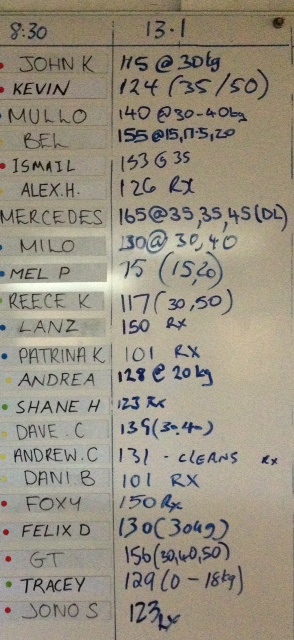 8:30 13.1
JOHN K 115 @ 30kg
KEVIN 124 (35/50)
MULLO 140 @30-40kg
BEL 155@15,17.5,20
ISMAIL 153 @ 35
ALEX.H. 126 Rx
MERCEDES 165@35,35,45(DL)
MILO 130@ 30,40
MEL P 75 (15,20)
REECE K 117(30,50)
LANZ 150 Rx
PATRINA K 101 RX
ANDREA 128 @ 20kg
SHANE H 123 Rx
DAVE.C 139(30.40)
ANDREW.C 131 - CLEANS Rx
DANI B 101 RX
FOXY 150 Rx
FELIX D 130(30kg)
GT 156(30,40,50)
TRACEY 129(0-18kg)
JONO S 123 Rx